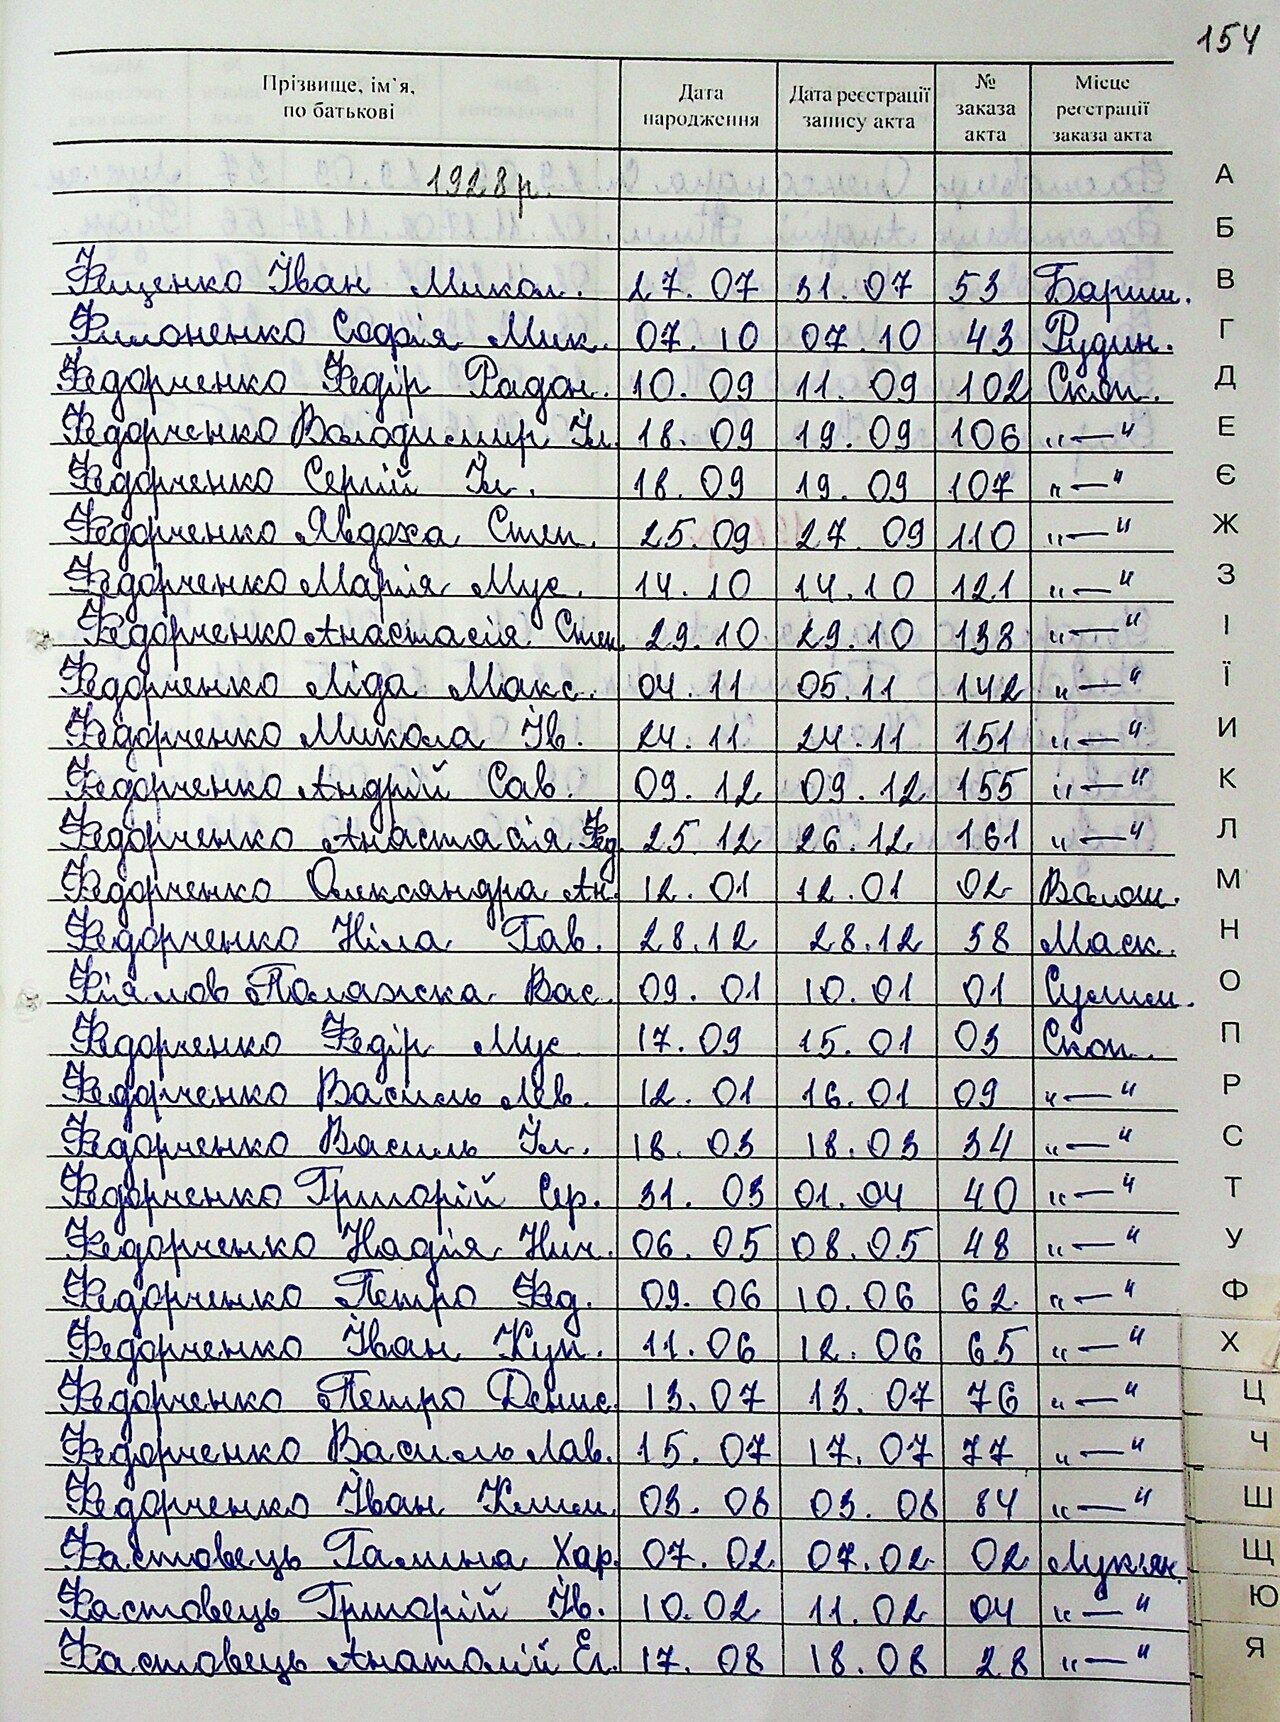 154
Прізвище, ім'я, по батькові Дата народження Дата реєстрації запису акта № заказа акта Місце реєстрації заказа акта
1928р. А
Б
Фещенко Іван Микол. 27.07 31.07 53 Бариш. В
Филоненко Софія Мик. 07.10 07.10 43 Рудин. Г
Федорченко Федір Радон. 10.09 11.09 102 Скоп. Д
Федорченко Володимир Іл. 18.09 19.09 106 „—“ Е
Федорченко Сергій Іл. 18.09 19.09 107 „—“ Є
Федорченко Явдоха Степ. 25.09 27.09 110 „—“ Ж
Федорченко Марія Мус. 14.10 14.10 121 „—“ З
Федорченко Анастасія Степ. 29.10 29.10 138 „—“ І
Федорченко Ліда Макс. 04.11 05.11 142 „—“ Ї
Федорченко Микола Ів. 24.11. 24.11 151 „—“ И
Федорченко Андрій Сав. 09.12 09.12 155 „—“ К
Федорченко Анастасія Фед. 25.12 26.12 161 „—“ Л
Федорченко Олександра Ан. 12.01 12.01 02 Волош. М
Федорченко Ніла Гав. 28.12 28.12 58 Маск. Н
Фіялов Полажка Вас. 09.01 10.01 01 Сулим. О
Федорченко Федір Мус. 17.09 15.01 03 Скоп. П
Федорченко Василь Лев. 12.01 16.01 09 „—“ Р
Федорченко Василь Іл. 18.03 18.03 34 „—“ С
Федорченко Григорій Сер. 31.03 01.04 40 „—“ Т
Федорченко Надія Нич. 06.05 08.05 48 „—“ У
Федорченко Петро Фед. 09.06 10.06 62 „—“ Ф
Федорченко Іван Куп. 11.06 12.06 65 „—“ Х
Федорченко Петро Денис. 13.07 13.07 76 „—“ Ц
Федорченко Василь Лав. 15.07 17.07 77 „—“ Ч
Федорченко Іван Клим. 03.08 03.08 84 „—“ Ш
Фастовець Галина Хар. 07.02 07.02 02 Лук'ян. Щ
Фастовець Григорій Ів. 10.02 11.02 04 „—“ Ю
Фастовець Анатолій Ел. 17.08 18.08 28 „—“ Я